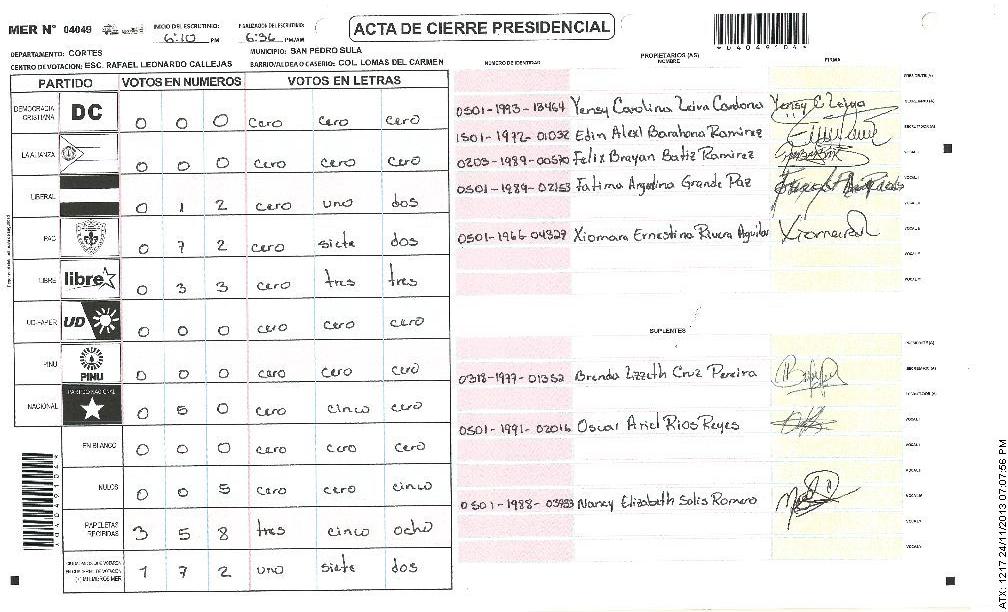 MER N° 04049
INICIO DEL ESCRUTINIO: 6:10 PM
FINALIZACION DEL ESCRUTINIO: 6:36 PM/AM
ACTA DE CIERRE PRESIDENCIAL
*04049104*
DEPARTAMENTO: CORTES
MUNICIPIO: SAN PEDRO SULA
CENTRO DE VOTACION: ESC. RAFAEL LEONARDO CALLEJAS
BARRIO/ALDEA O CASERIO: COL. LOMAS DEL CARMEN
PARTIDO VOTOS EN NUMEROS VOTOS EN LETRAS
DEMOCRACIA CRISTIANA DC 0 0 0 cero cero cero
LA ALIANZA 0 0 0 cero cero cero
LIBERAL 0 1 2 cero uno dos
PAC 0 7 2 cero siete dos
LIBRE libre 0 3 3 cero tres tres
UD-FAPER UD 0 0 0 cero cero cero
PINU PINU 0 0 0 cero cero cero
NACIONAL PARTIDO NACIONAL 0 5 0 cero cinco cero
EN BLANCO 0 0 0 cero cero cero
NULOS 0 0 5 cero cero cinco
PAPELETAS RECIBIDAS 3 5 8 tres cinco ocho
1 7 2 uno siete dos
NUMERO DE IDENTIDAD PROPIETARIOS (AS) NOMBRE FIRMA
0501-1993-13464 Yensy Carolina Leiva Cardona
1501-1972-01032 Edin Alexl Barahona Ramirez
0203-1989-00570 Felix Brayan Batiz Ramirez
0501-1989-02153 Fatima Argentina Grande Paz
0501-1966-04329 Xiomara Ernestina Rivera Aguilar
SUPLENTES
0318-1977-01352 Brenda Lizzeth Cruz Pereira
0501-1991-02016 Oscar Ariel Rios Reyes
0501-1988-03933 Nancy Elizabeth Solis Romero
ATX: 1217 24/11/2013 07:07:56 PM